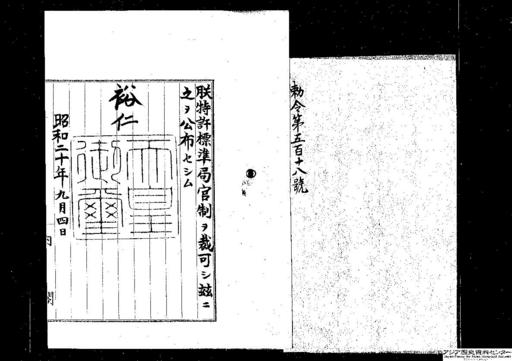 勅令第五百十八號
朕特許標準局官制ヲ裁可シ玆ニ
之ヲ公布セシム
裕仁
天皇御璽
昭和二十年九月四日
内閣
アジア歴史資料センター